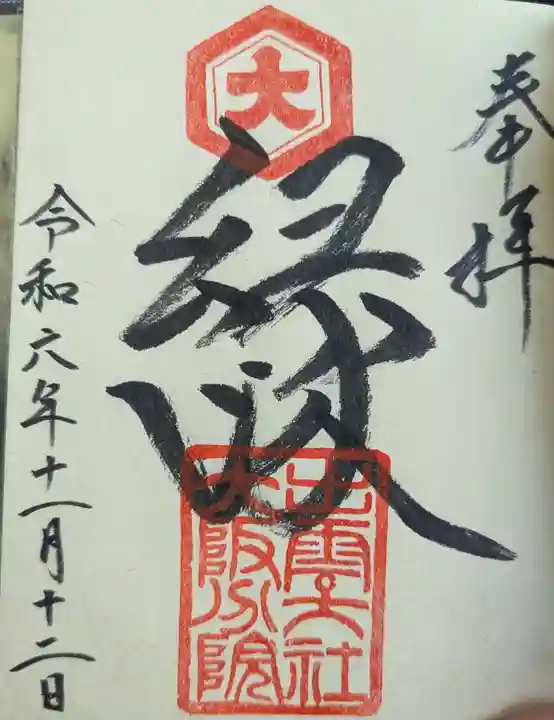 奉拝
大
縁
出雲大社
大阪分院
令和六年十一月十二日